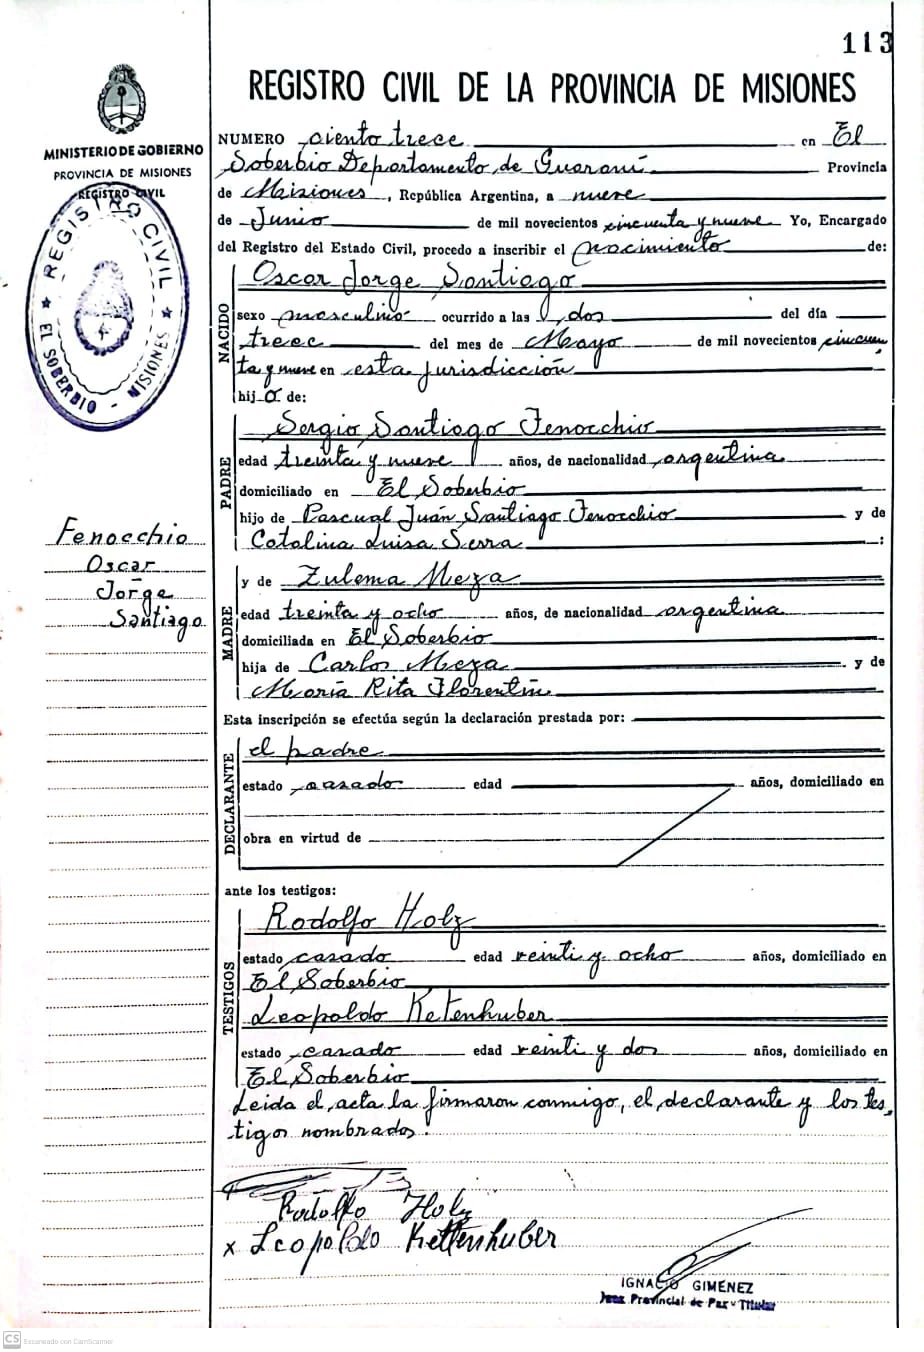 113
REGISTRO CIVIL DE LA PROVINCIA DE MISIONES
MINISTERIO DE GOBIERNO
PROVINCIA DE MISIONES
REGISTRO CIVIL
REGISTRO CIVIL
★ EL SOBERBIO - MISIONES ★
NUMERO ciento trece en El
Soberbio Departamento de Guaraní Provincia
de Misiones, República Argentina, a nueve
de Junio de mil novecientos cincuenta y nueve Yo, Encargado
del Registro del Estado Civil, procedo a inscribir el nacimiento de:
NACIDO
Oscar Jorge Santiago
sexo masculino ocurrido a las dos del día
trece del mes de Mayo de mil novecientos cincuen
ta y nueve en esta jurisdicción
hijo de:
PADRE
Sergio Santiago Fenocchio
edad treinta y nueve años, de nacionalidad argentina
domiciliado en El Soberbio
hijo de Pascual Juán Santiago Fenocchio y de
Catalina Luisa Serra :
Fenocchio
Oscar
Jorge
Santiago
MADRE
y de Zulema Meza
edad treinta y ocho años, de nacionalidad argentina
domiciliada en El Soberbio
hija de Carlos Meza y de
María Rita Florentín
Esta inscripción se efectúa según la declaración prestada por:
DECLARANTE
el padre
estado casado edad años, domiciliado en
obra en virtud de
ante los testigos:
TESTIGOS
Rodolfo Holz
estado casado edad veinti y ocho años, domiciliado en
El Soberbio
Leopoldo Ketenhuber
estado casado edad veinti y dos años, domiciliado en
El Soberbio
Leida el acta la firmaron conmigo, el declarante y los tes,
tigos nombrados.
Rodolfo Holz
x Leopoldo Kettenhuber
IGNACIO GIMENEZ
Juez Provincial de Paz - Titular
CS Escaneado con CamScanner